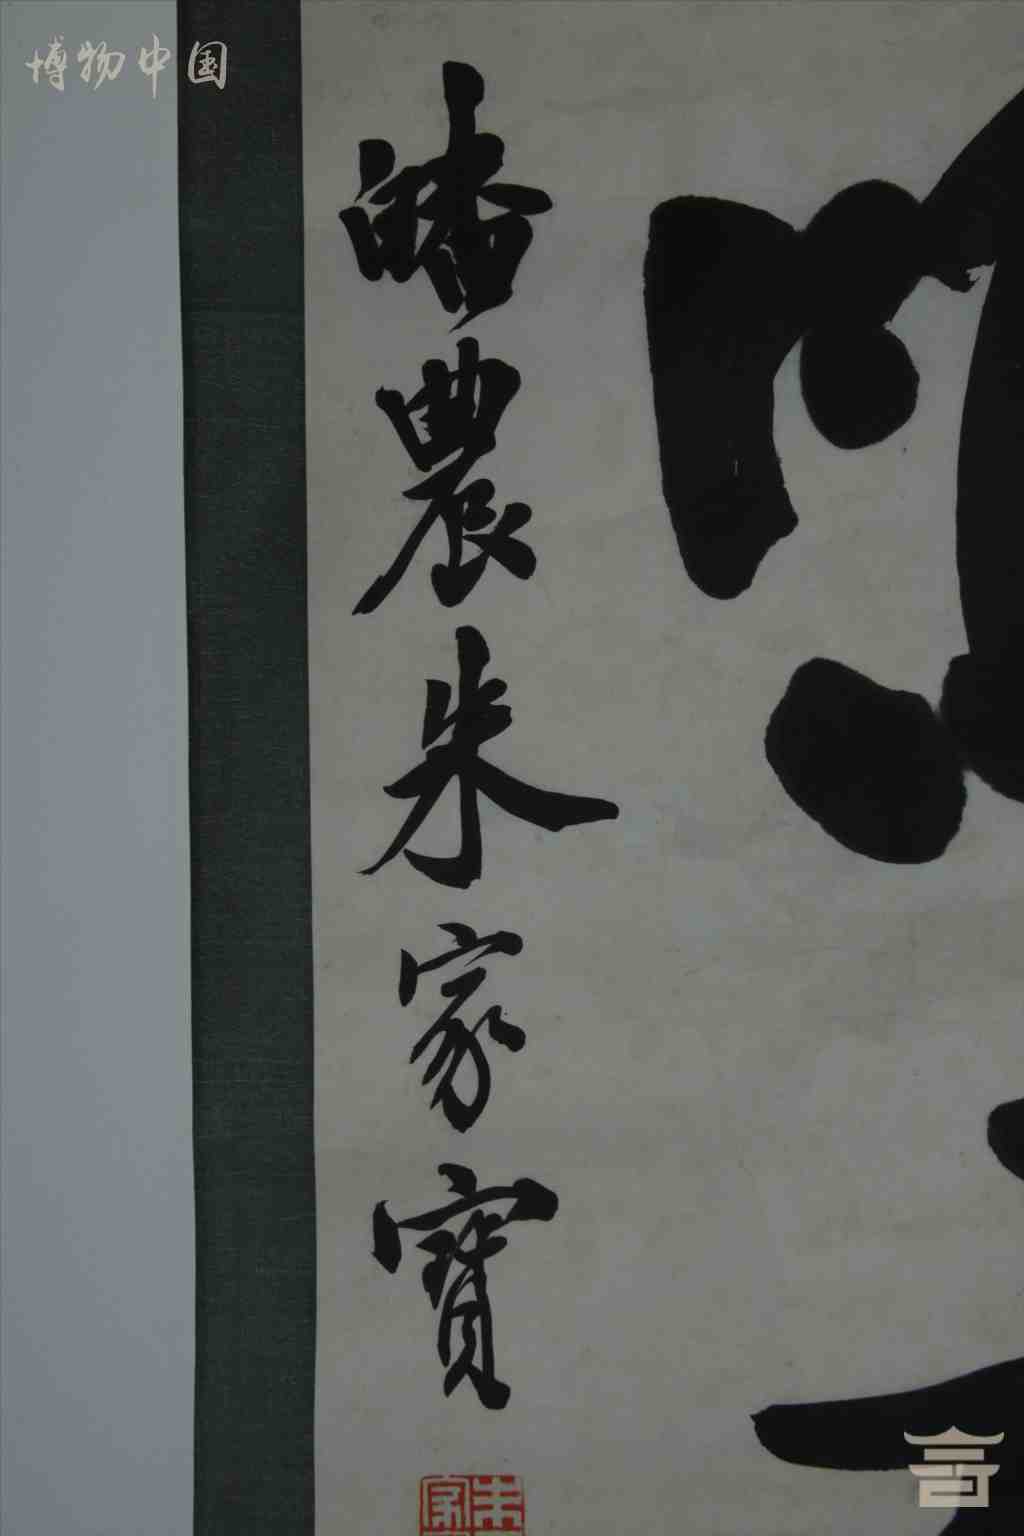 博物中国
農朱家寶
朱家